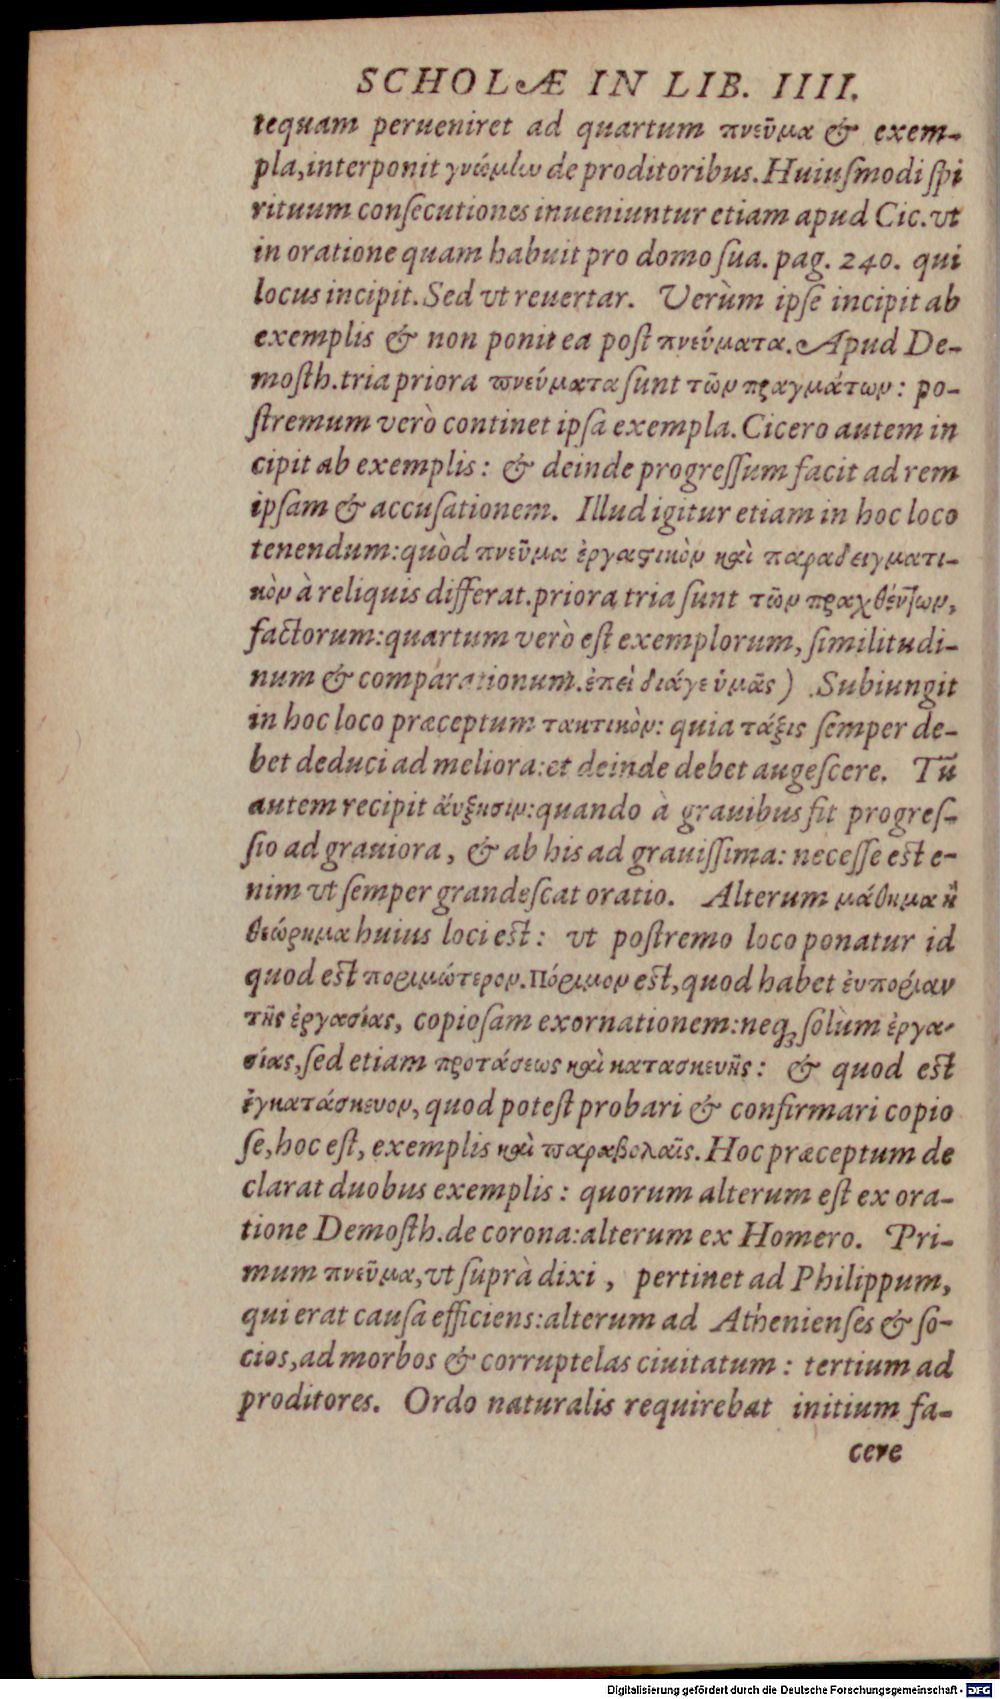 SCHOLÆ IN LIB. IIII.
tequam perueniret ad quartum πνεῦμα & exem-
pla, interponit γνώμην de proditoribus. Huiuſmodi ſpi
rituum conſecutiones inueniuntur etiam apud Cic. vt
in oratione quam habuit pro domo ſua. pag. 240. qui
locus incipit. Sed vt reuertar. Verùm ipſe incipit ab
exemplis & non ponit ea poſt πνεύματα. Apud De-
moſth. tria priora πνεύματα ſunt τῶν πραγμάτων: po-
ſtremum verò continet ipſa exempla. Cicero autem in
cipit ab exemplis: & deinde progreſſum facit ad rem
ipſam & accuſationem. Illud igitur etiam in hoc loco
tenendum: quòd πνεῦμα ἐργαστικὸν καὶ παραδειγματι-
κὸν à reliquis differat. priora tria ſunt τῶν πραχθέντων,
factorum: quartum verò eſt exemplorum, ſimilitudi-
num & comparationum. ἐπεὶ διάγε ὑμᾶς) Subiungit
in hoc loco præceptum τακτικὸν: quia τάξις ſemper de-
bet deduci ad meliora: et deinde debet augeſcere. Tū
autem recipit ἄυξησιν: quando à grauibus fit progreſ-
ſio ad grauiora, & ab his ad grauiſſima: neceſſe eſt e-
nim vt ſemper grandeſcat oratio. Alterum μάθημα ἢ
θεώρημα huius loci eſt: vt poſtremo loco ponatur id
quod eſt ποριμώτερον. Πόριμον eſt, quod habet ἐυπορίαν
τῆς ἐργασίας, copioſam exornationem: neqꝫ ſolùm ἐργα-
σίας, ſed etiam προτάσεως καὶ κατασκευῆς: & quod eſt
ἐγκατάσκευον, quod poteſt probari & confirmari copio
ſe, hoc eſt, exemplis καὶ παραβολαῖς. Hoc præceptum de
clarat duobus exemplis: quorum alterum eſt ex ora-
tione Demoſth. de corona: alterum ex Homero. Pri-
mum πνεῦμα, vt ſuprà dixi, pertinet ad Philippum,
qui erat cauſa efficiens: alterum ad Athenienſes & ſo-
cios, ad morbos & corruptelas ciuitatum: tertium ad
proditores. Ordo naturalis requirebat initium fa-
cere
Digitalisierung gefördert durch die Deutsche Forschungsgemeinschaft - DFG